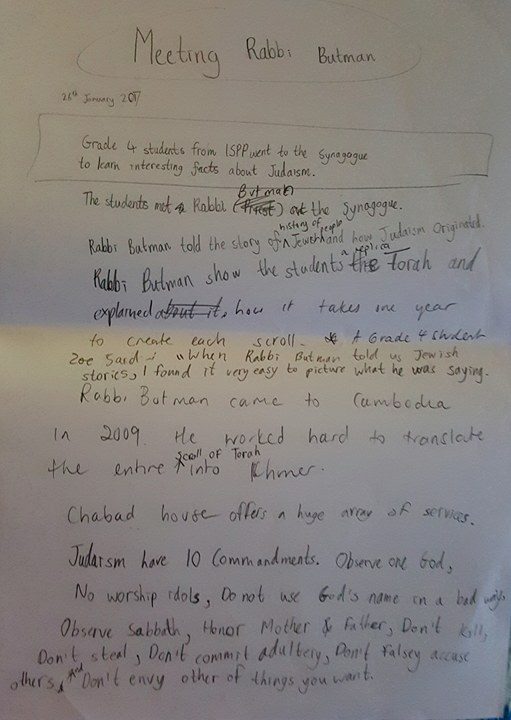 Meeting Rabbi Butman
26th January 2017
Grade 4 students from ISPP went to the Synagogue
to learn interesting facts about Judaism.
The students met Rabbi Butman at the Synagogue.
Rabbi Butman told the story of history of Jewish people and how Judaism Originated.
Rabbi Butman show the students a replica Torah and
explained how it takes one year
to create each scroll. A Grade 4 student
Zoe said: "When Rabbi Butman told us Jewish
stories, I found it very easy to picture what he was saying.
Rabbi Butman came to Cambodia
In 2009. He worked hard to translate
the entire scroll of Torah into Khmer.
Chabad house offers a huge array of services.
Judaism have 10 Commandments. Observe one God,
No worship idols, Do not use God's name in a bad ways
Observe Sabbath, Honor Mother & Father, Don't kill,
Don't steal, Don't commit adultery, Don't falsey accuse
others, And Don't envy other of things you want.